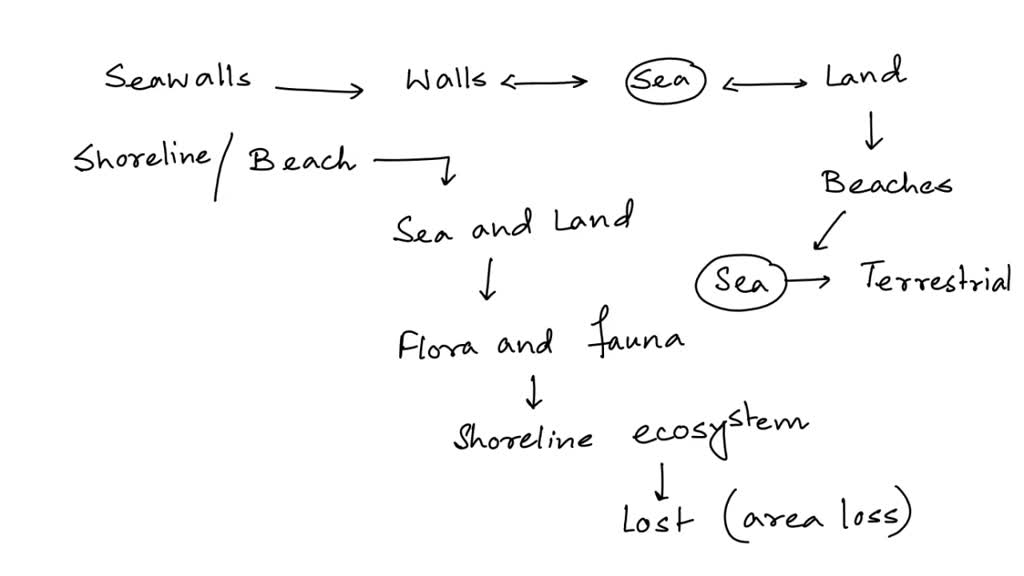 Seawalls → Walls ↔ Sea ↔ Land
Shoreline / Beach
Beaches
Sea and Land
Sea → Terrestrial
Flora and fauna
Shoreline ecosystem
Lost (area loss)